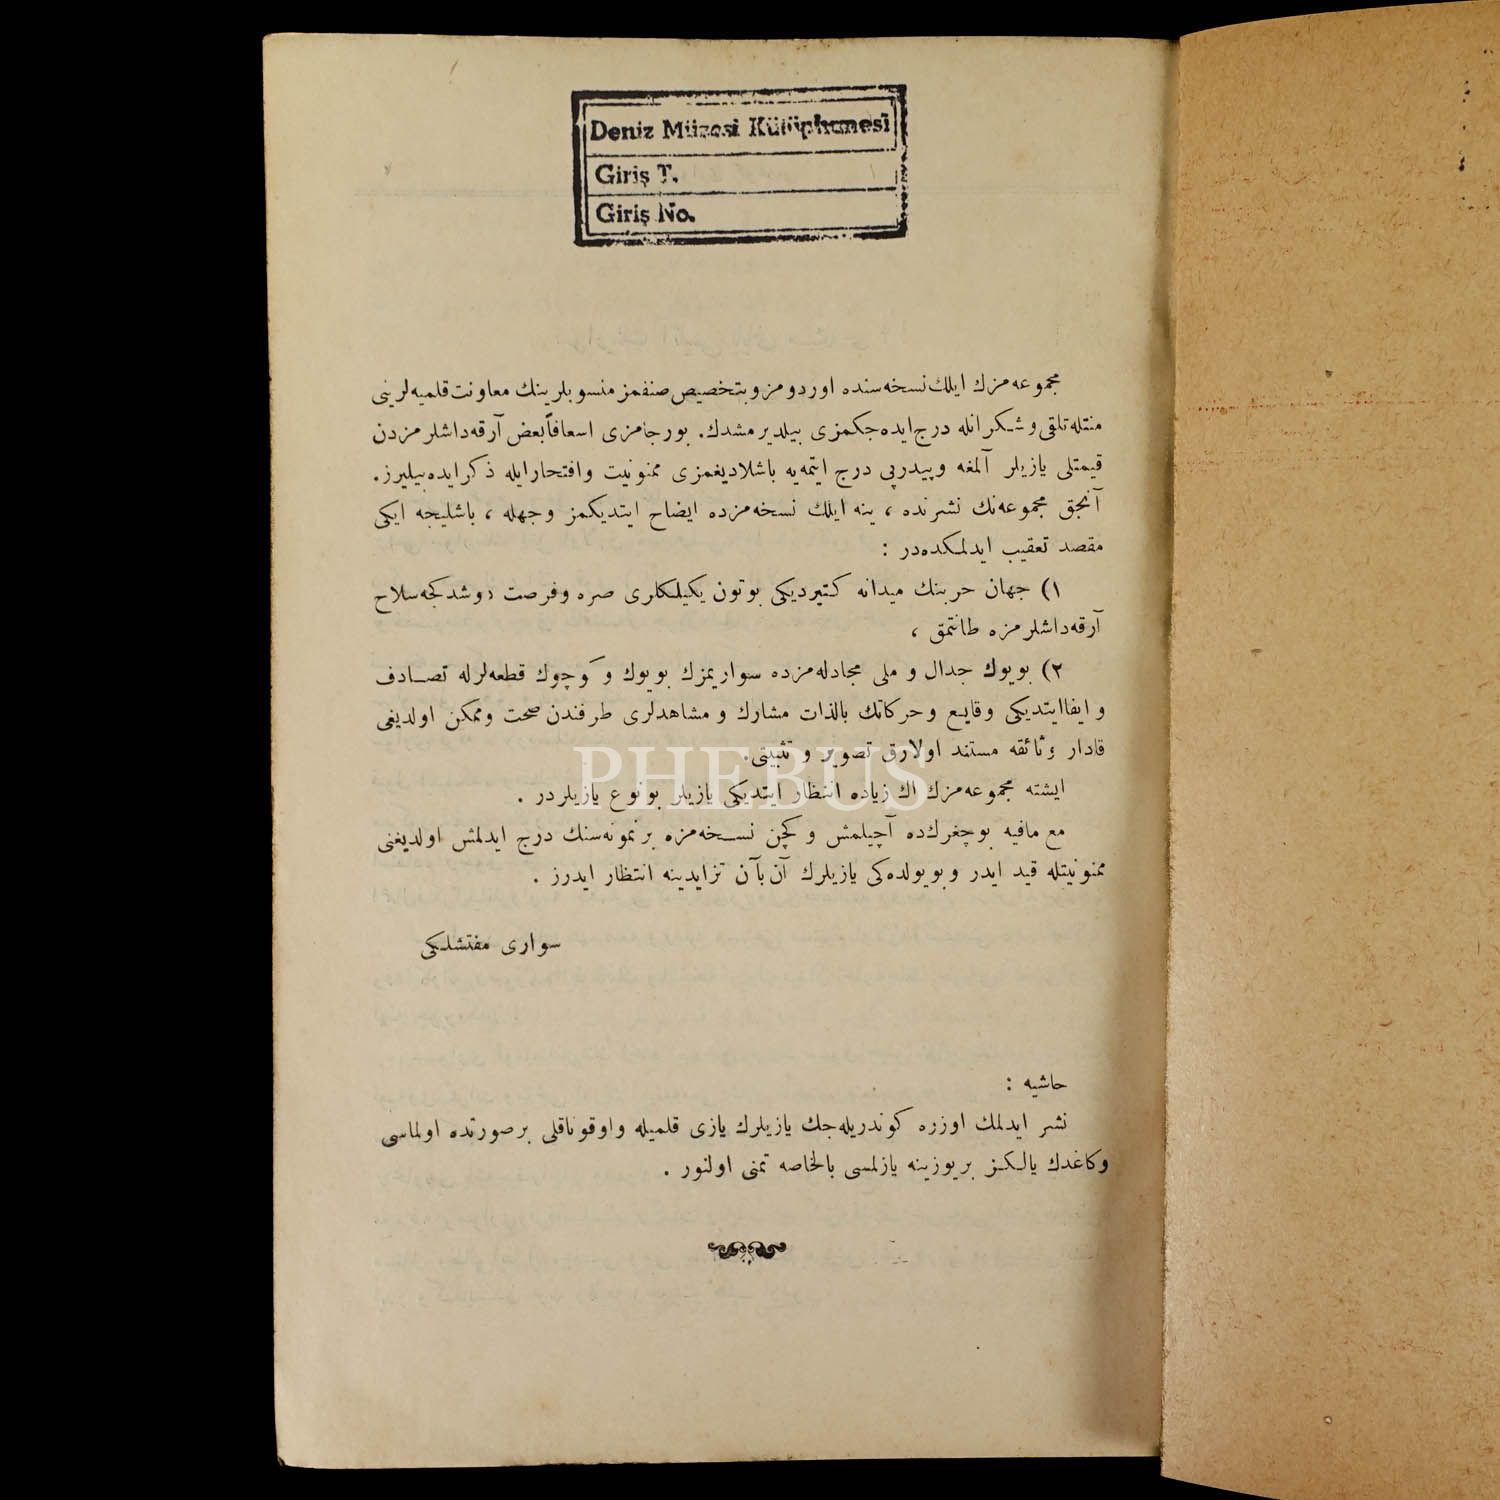 Deniz Müzesi Kütüphanesi
Giriş T.
Giriş No.
مجموعه‌مزك ايلك نسخه‌سنده اوردومز و بتخصيص صنفمز منسوبلرينك معاونت قلميه‌لرينى
منتله تلقى و شكرانله درج ايده‌جكمزى بيلديرمشدك. بو رجامزى اسعافاً بعض آرقه‌داشلرمزدن
قيمتلى يازيلر آلمغه و پيدرپى درج ايتمه‌يه باشلاديغمزى ممنونيت و افتخار ايله ذكر ايده‌بيليرز.
آنجق مجموعه‌نك نشرنده ، ينه ايلك نسخه‌مزده ايضاح ايتديكمز وجهله ، باشليجه ايكى
مقصد تعقيب ايدلمكده‌در :
١) جهان حربنك ميدانه كتيرديكى بوتون يكيلكلرى صره و فرصت دوشدكجه سلاح
آرقه‌داشلرمزه طانتمق ،
٢) بويوك جدال و ملى مجادله‌مزده سواريمزك بويوك و كوچوك قطعه‌لرله تصادف
و ايفا ايتديكى وقايع و حركاتك بالذات مشارك و مشاهدلرى طرفندن صحت و ممكن اولديغى
قادار وثائقه مستند اولارق تصوير و تثبيتى.
ايشته مجموعه‌مزك اك زياده انتظار ايتديكى يازيلر بو نوع يازيلردر .
مع مافيه بو چغرك ده آچيلمش و كچن نسخه‌مزه بر نمونه‌سنك درج ايدلمش اولديغنى
ممنونيتله قيد ايدر و بو يولده‌كى يازيلرك آن بآن تزايدينه انتظار ايدرز .
سوارى مفتشلكى
حاشيه :
نشر ايدلمك اوزره كوندريله‌جك يازيلرك يازى قلميله و اوقوناقلى بر صورتده اولماسى
و كاغدك يالكز بر يوزينه يازلمسى بالخاصه تمنى اولنور .
PHEBUS